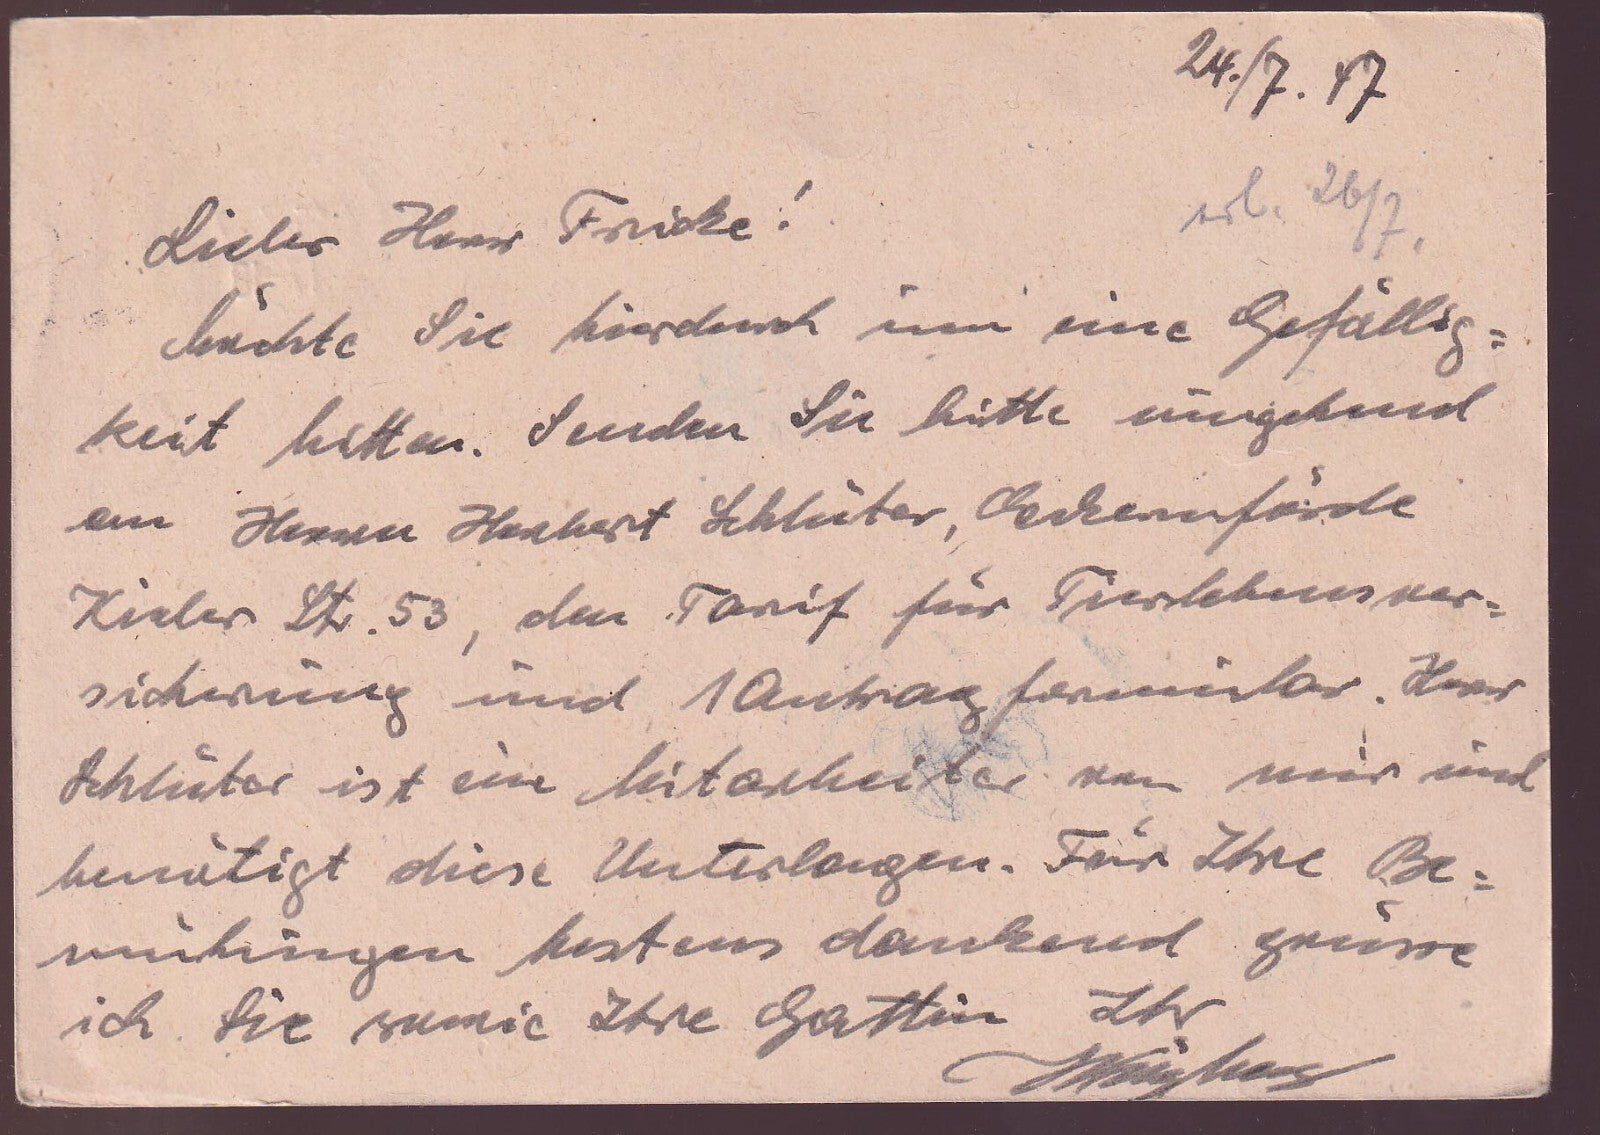 24./7. 47
erl. 26/7.
Lieber Herr Fricke!
Möchte Sie hierdurch um eine Gefällig=
keit bitten. Senden Sie bitte umgehend
an Herrn Herbert Schlüter, Eckernförde
Kieler Str. 53, den Tarif für Tierlebensver=
sicherung und 1 Antragformular. Herr
Schlüter ist ein Mitarbeiter von mir und
benötigt diese Unterlagen. Für Ihre Be=
mühungen bestens dankend grüsse
ich Sie sowie Ihre Gattin Ihr